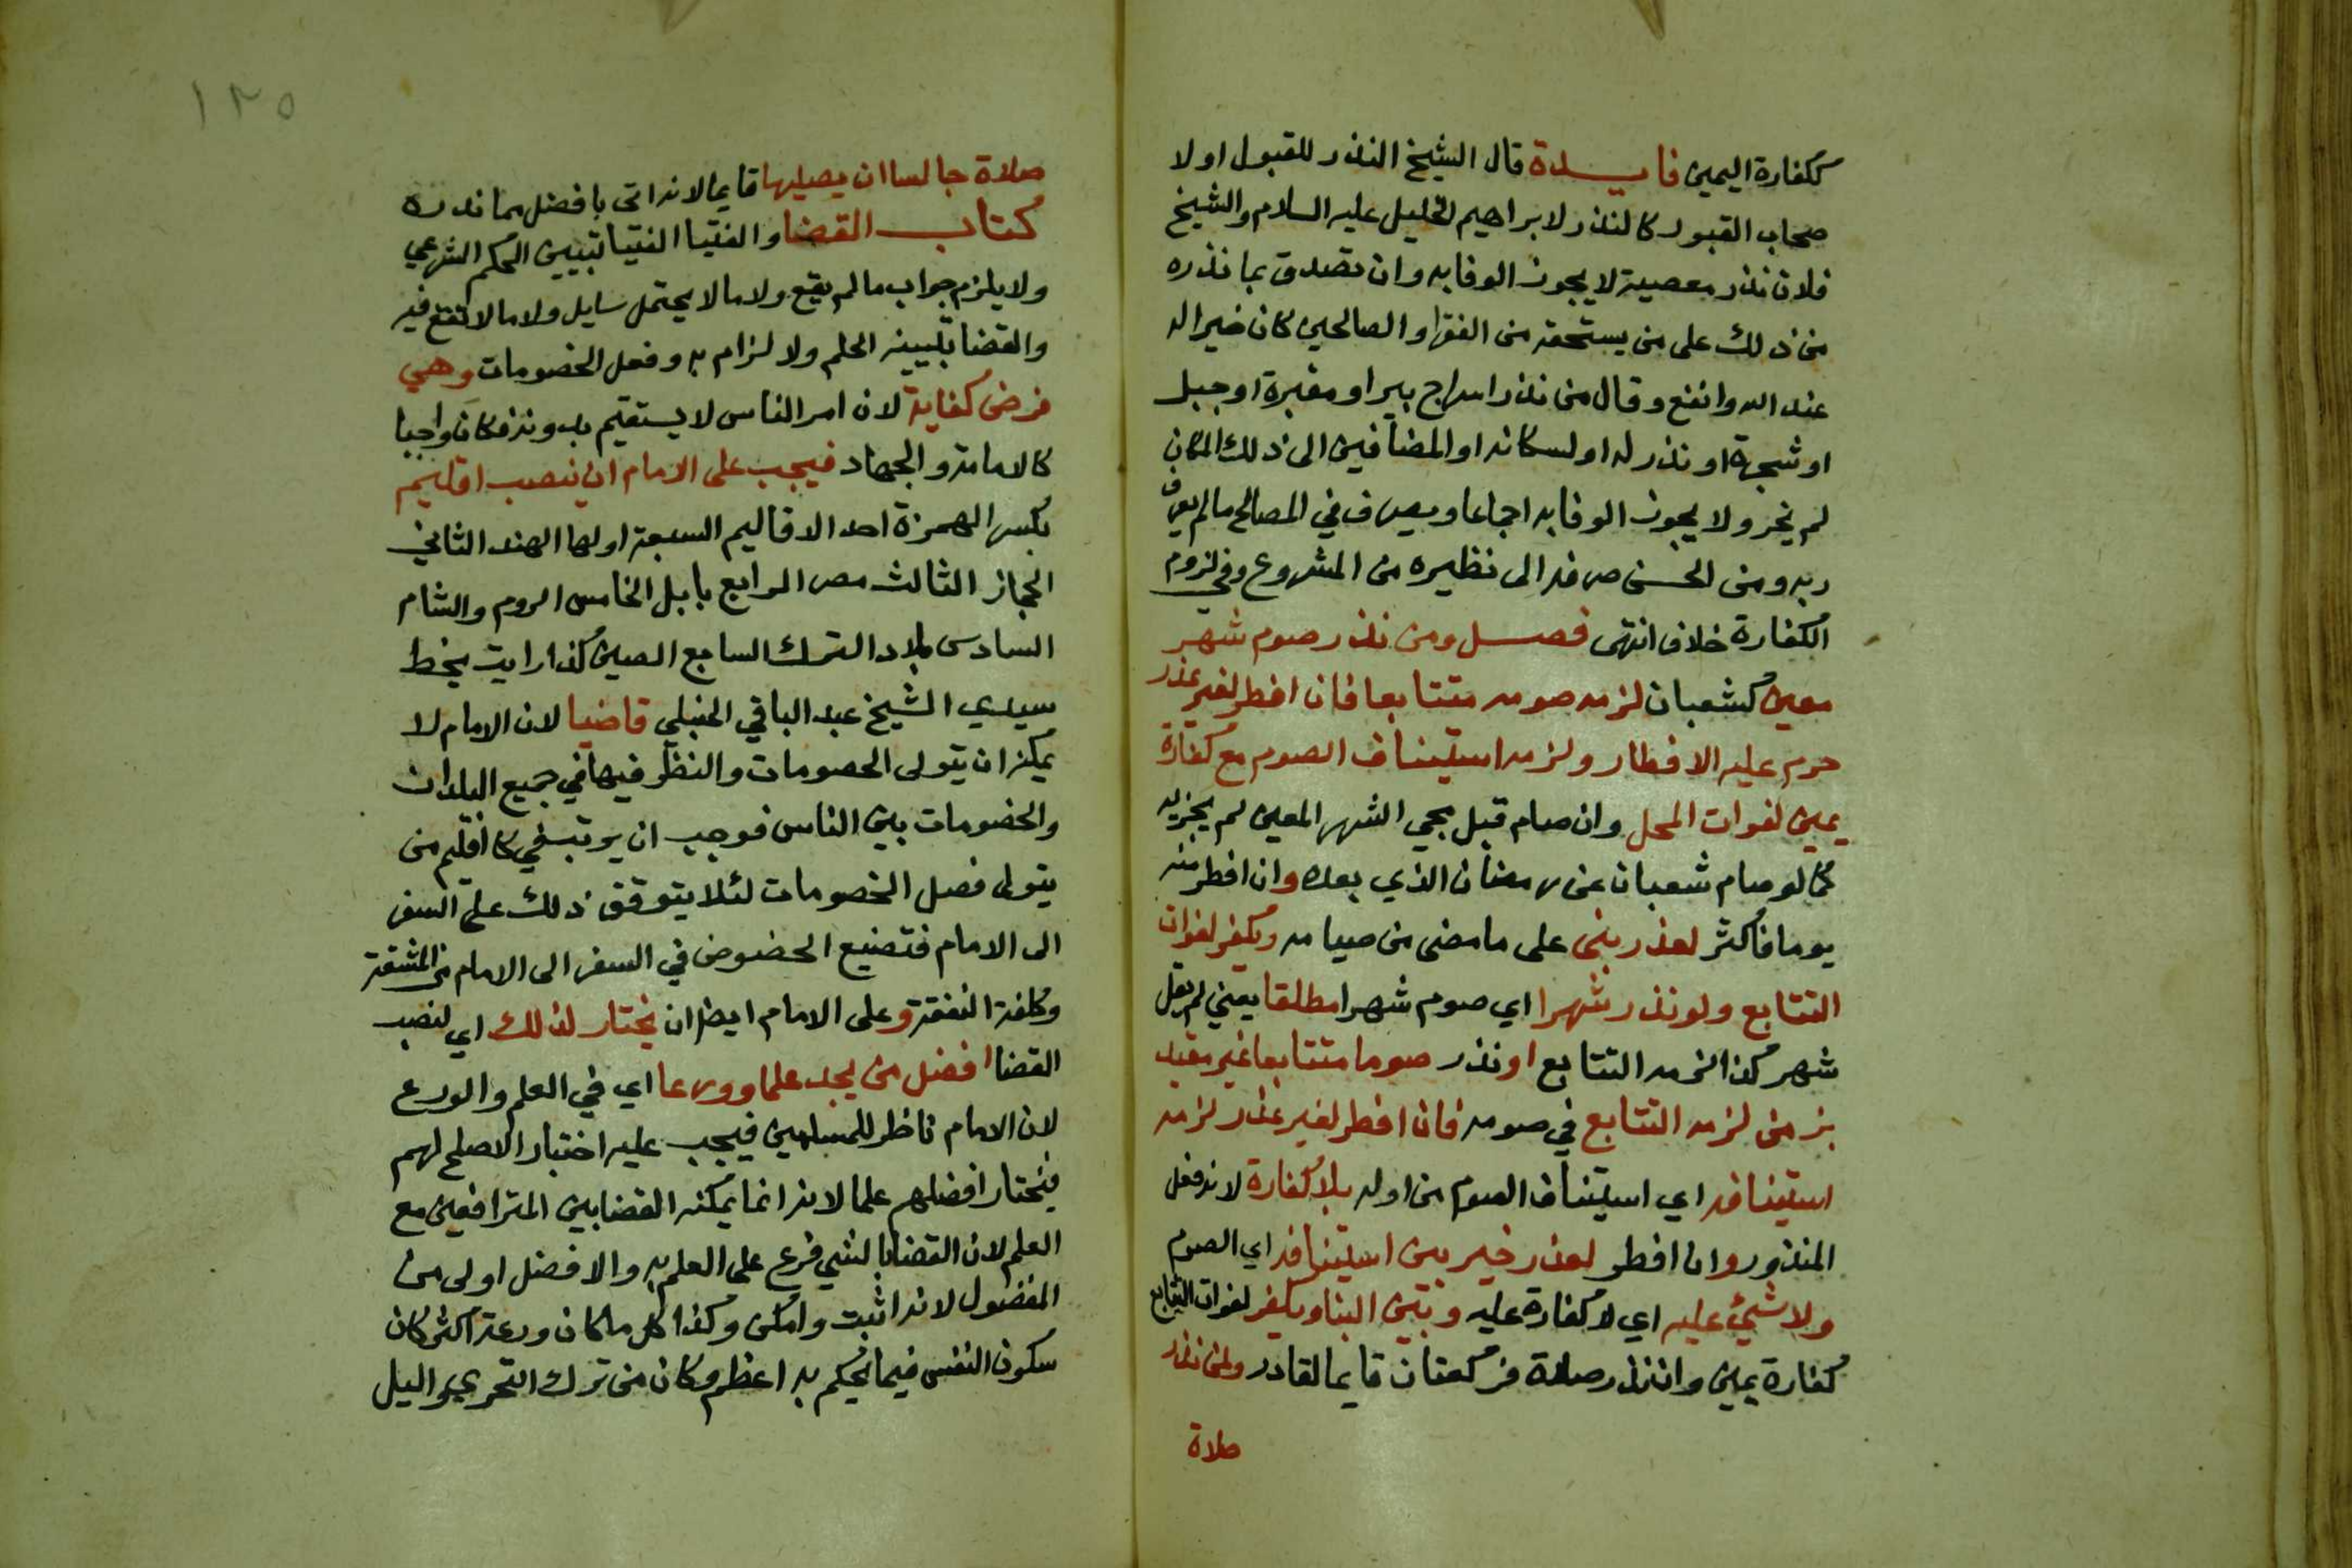 ككفارة اليمين فايدة قال الشيخ النذر للقبول اولا
صحاب القبور كالنذر لابراهيم الخليل عليه السلام والشيخ
فلان نذر معصية لا يجوز الوفا به وان تصدق بما نذره
من ذلك على من يستحقه من الفقرا والصالحين كان خيرا له
عند الله وانفع وقال من نذر اسراج بير او مقبرة او جبل
او شجرة او نذر له او لسكانه او المضافين الى ذلك المكان
لم يجز ولا يجوز الوفا به اجماعا ويصرف في المصالح مالم يعرف
ربه ومن الحسن صرفه الى نظيره من المشروع وفي لزوم
الكفارة خلاف انتهى فصل ومن نذر صوم شهر
معين كشعبان لزمه صومه متتابعا فان افطر لغير عذر
حرم عليه الافطار ولزمه استيناف الصوم مع كفارة
يمين لفوات المحل وان صام قبل مجي الشهر المعين لم يجزيه
كما لو صام شعبان عن رمضان الذي بعده وان افطر منه
يوما فاكثر لعذر بنى على ما مضى من صيامه ويكفر لفوات
التتابع ولو نذر شهرا اي صوم شهرا مطلقا يعني لم يقل
شهر كذا لزمه التتابع او نذر صوما متتابعا غير مقيد
بزمن لزمه التتابع في صومه فان افطر لغير عذر لزمه
استينافه اي استيناف الصوم من اوله بلا كفارة لانه فعل
المنذور وان افطر لعذر خير بين استينافه اي الصوم
ولا شيئ عليه اي لا كفارة عليه وبين البنا ويكفر لفوات التتابع
كفارة يمين وان نذر صلاة فركعتان قايما لقادر ولمن نذر
صلاة
١٢٥
صلاة جالسا ان يصليها قايما لانه اتى بافضل مما نذره
كتاب القضا والفتيا الفتيا تبيين الحكم الشرعي
ولا يلزم جواب ما لم يقع ولا ما لا يحتمل سايل ولا ما لا نفع فيه
والقضا تبيينه الحلم ولا لزام به وفعل الخصومات وهي
فرض كفاية لان امر الناس لا يستقيم بدونه فكان واجبا
كالامامة والجهاد فيجب على الامام ان ينصب اقليم
بكسر الهمزة احد الاقاليم السبعة اولها الهند الثاني
الحجاز الثالث مصر الرابع بابل الخامس الروم والشام
السادس بلاد الترك السابع الصين كذا رايت بخط
سيدي الشيخ عبد الباقي الحنبلي قاضيا لان الامام لا
يمكنه ان يتولى الخصومات والنظر فيها في جميع البلدان
والخصومات بين الناس فوجب ان يرتب في كل اقليم من
يتولى فصل الخصومات لئلا يتوقف ذلك على السفر
الى الامام فتضيع الحضوض في السفر الى الامام من المشقة
وكلفة النفقة وعلى الامام ايضا ان يختار لذلك اي لنصب
القضا افضل من يجد علما وورعا اي في العلم والورع
لان الامام ناظر للمسلمين فيجب عليه اختيار الاصلح لهم
فيختار افضلهم علما لانه انما يمكنه القضا بين المترافعين مع
العلم لان القضا بالشي فرع على العلم به والافضل اولى من
المفضول لانه اثبت وامكن وكذا كل ما كان ورعه اكثر كان
سكون النفس فيما يحكم به اعظم وكان من ترك التحري والميل